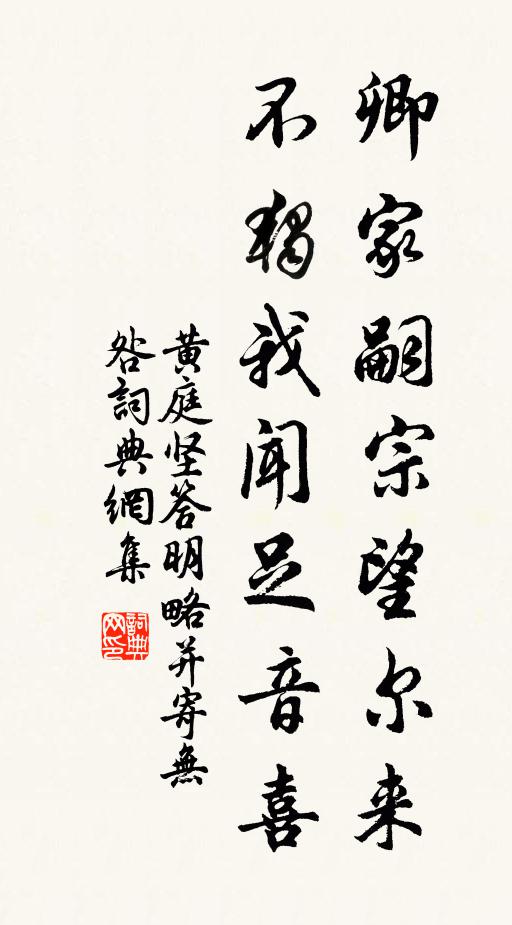 卿家嗣宗望尔来
不独我闻足音喜
黄庭坚答明略并寄無
咎詞典網集
詞典
网印